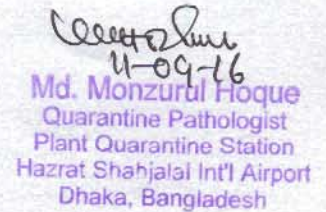 11-09-16
Md. Monzurul Hoque
Quarantine Pathologist
Plant Quarantine Station
Hazrat Shahjalal Int'l Airport
Dhaka, Bangladesh